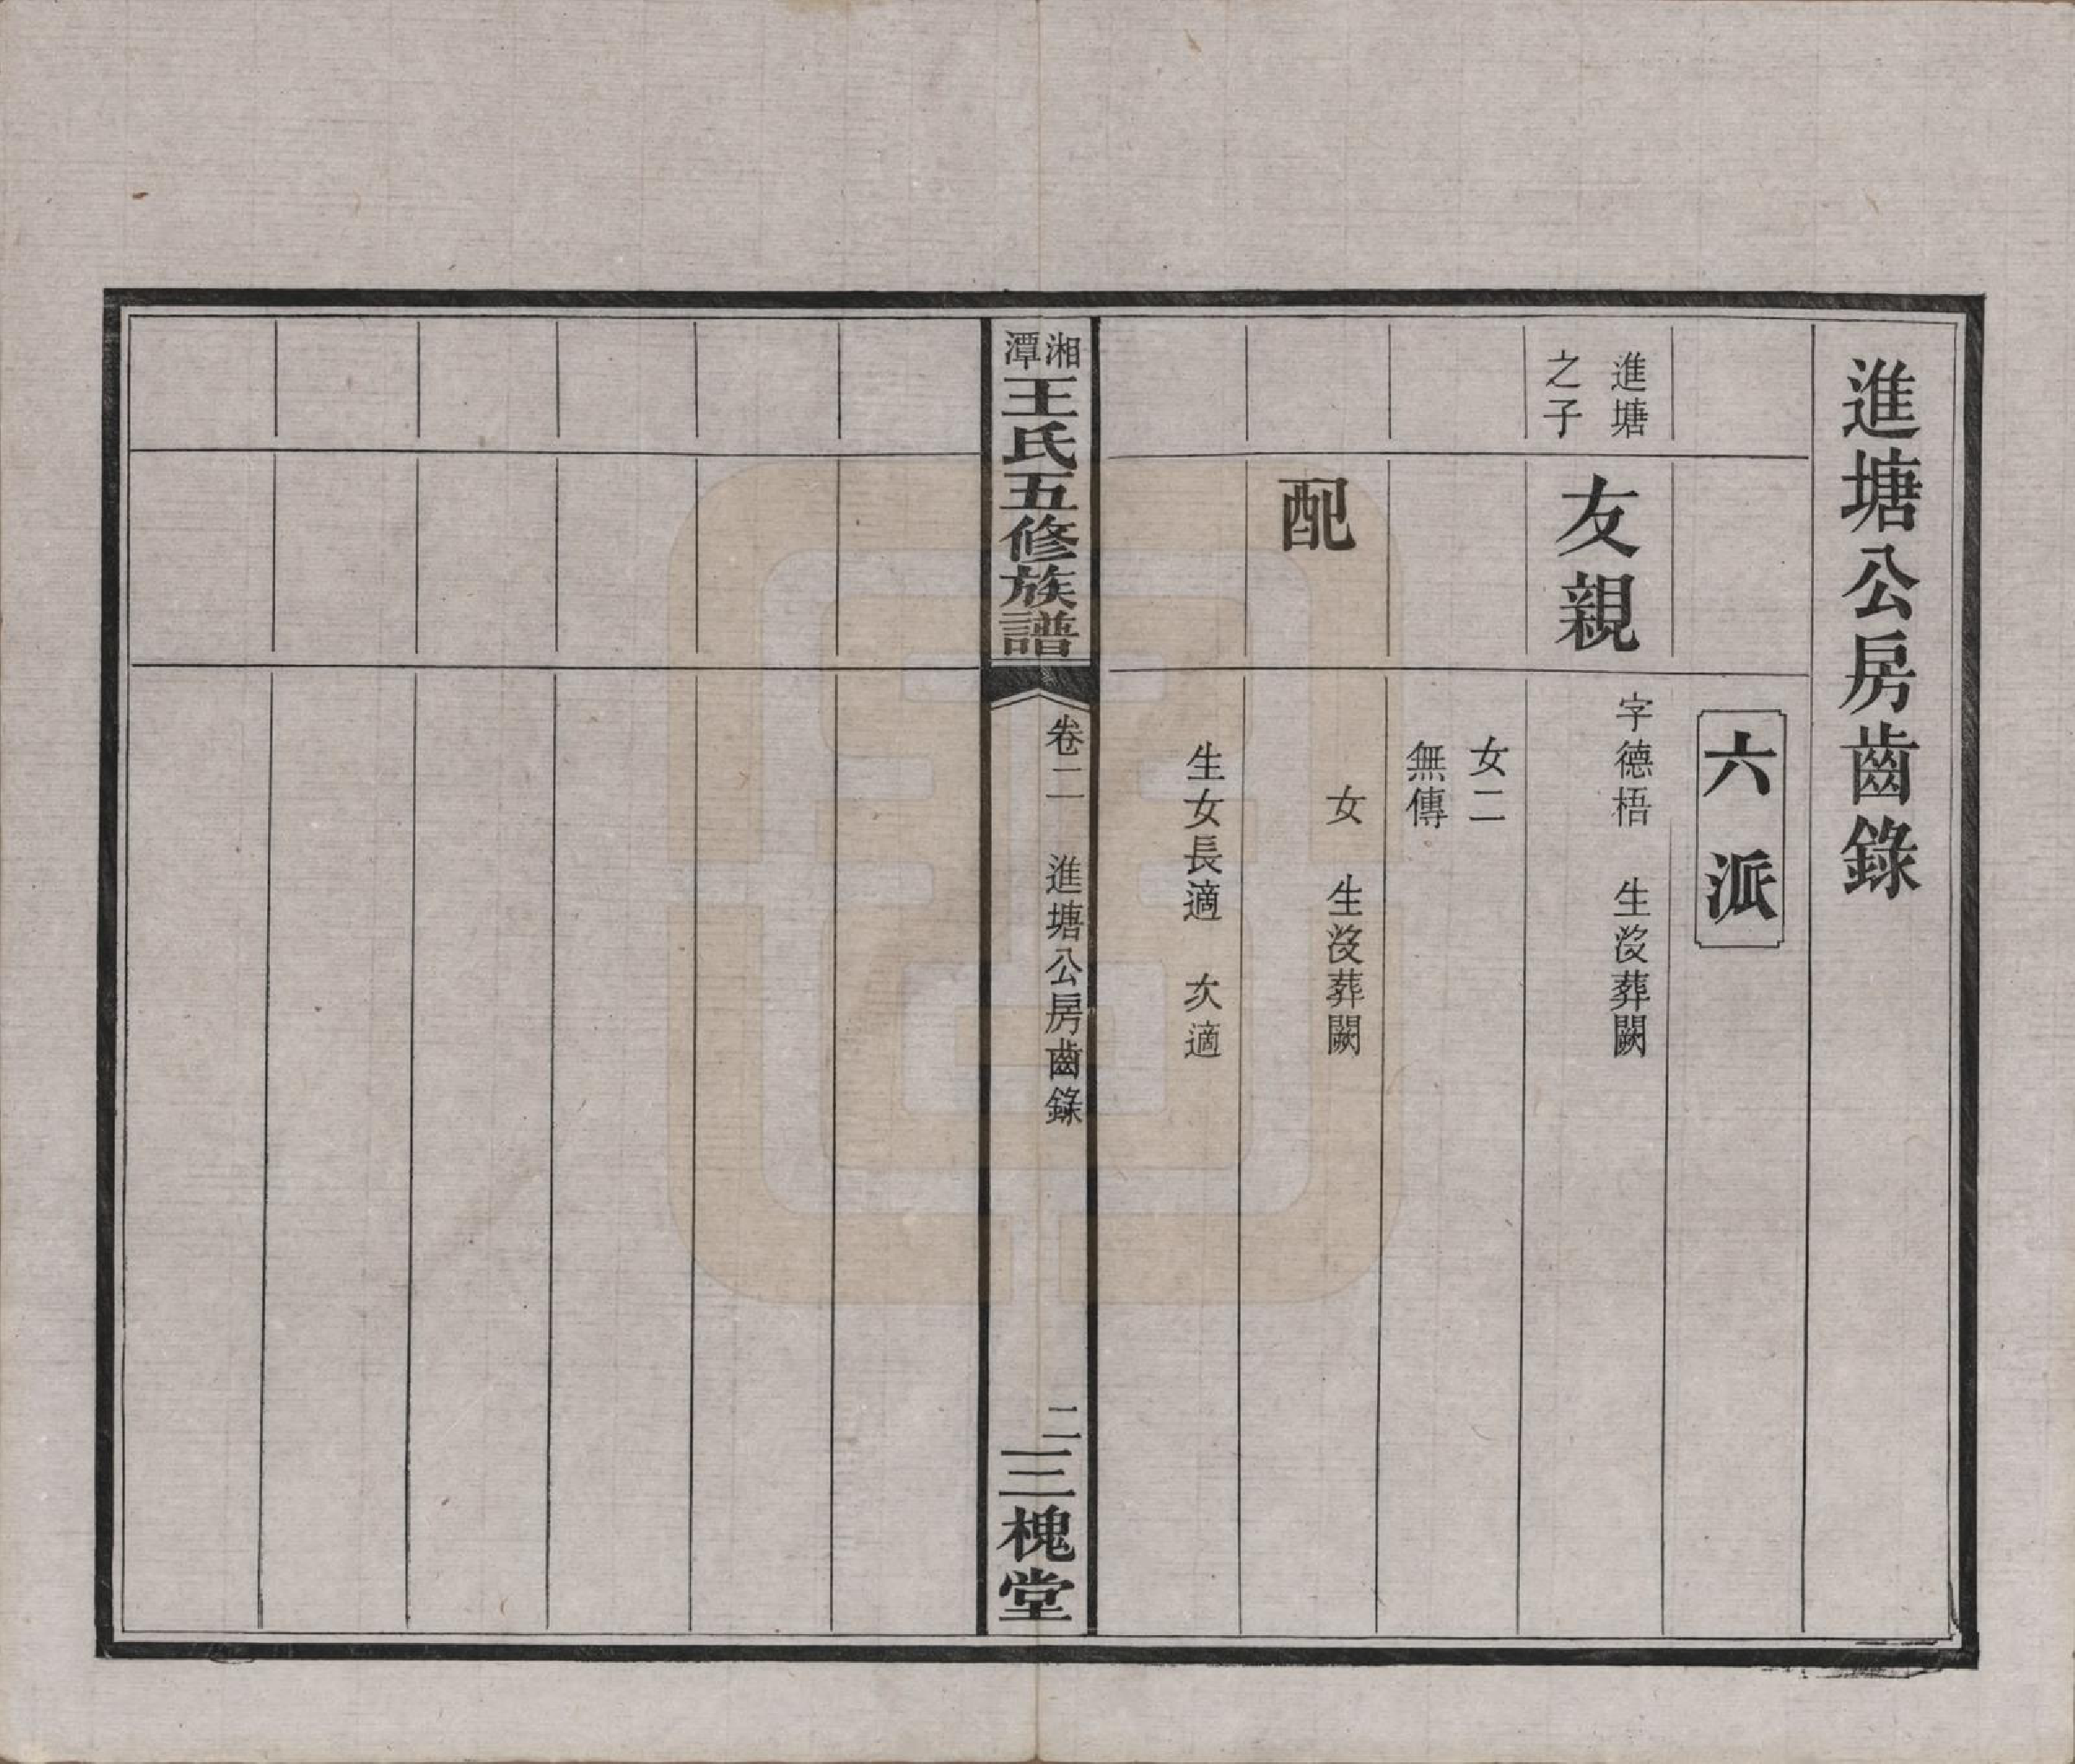 進塘公房齒錄
六派
進塘
之子
友親
字德梧　生沒葬闕
女二
無傳
配
女　生沒葬闕
生女長適　次適
湘潭王氏五修族譜
卷二　進塘公房齒錄
二
三槐堂